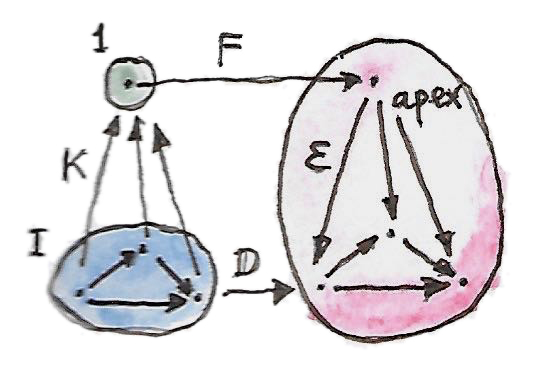 1
F
apex
K
ε
I
D